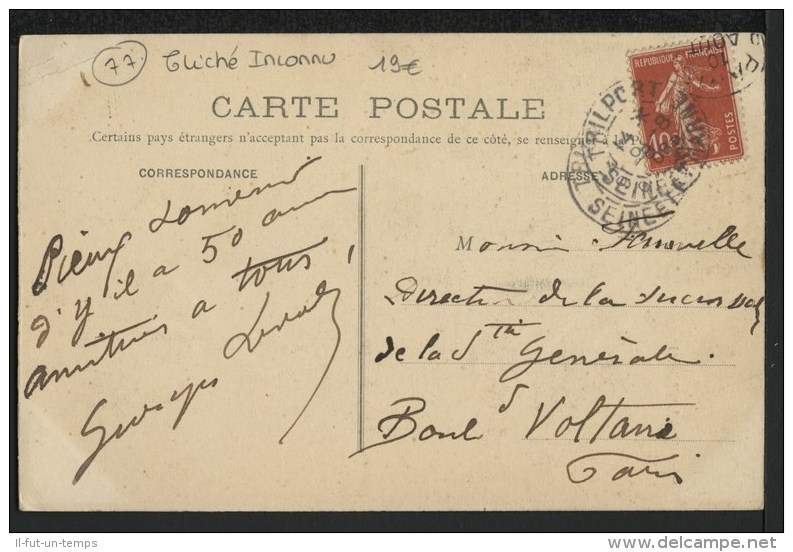 77 Cliché Inconnu 19€
CARTE POSTALE
Certains pays étrangers n'acceptant pas la correspondance de ce côté, se renseigner à la Poste
CORRESPONDANCE
ADRESSE
REPUBLIQUE FRANÇAISE
10
POSTES
TRILPORT
SEINE ET MARNE
Pieux souvenir
d'y il a 50 ans
amitiés a tous,
Georges
Monsieur
Directeur de la succursale
de la Sté Générale
Boul d Voltaire
Paris
Il-fut-un-temps
delcampe.net